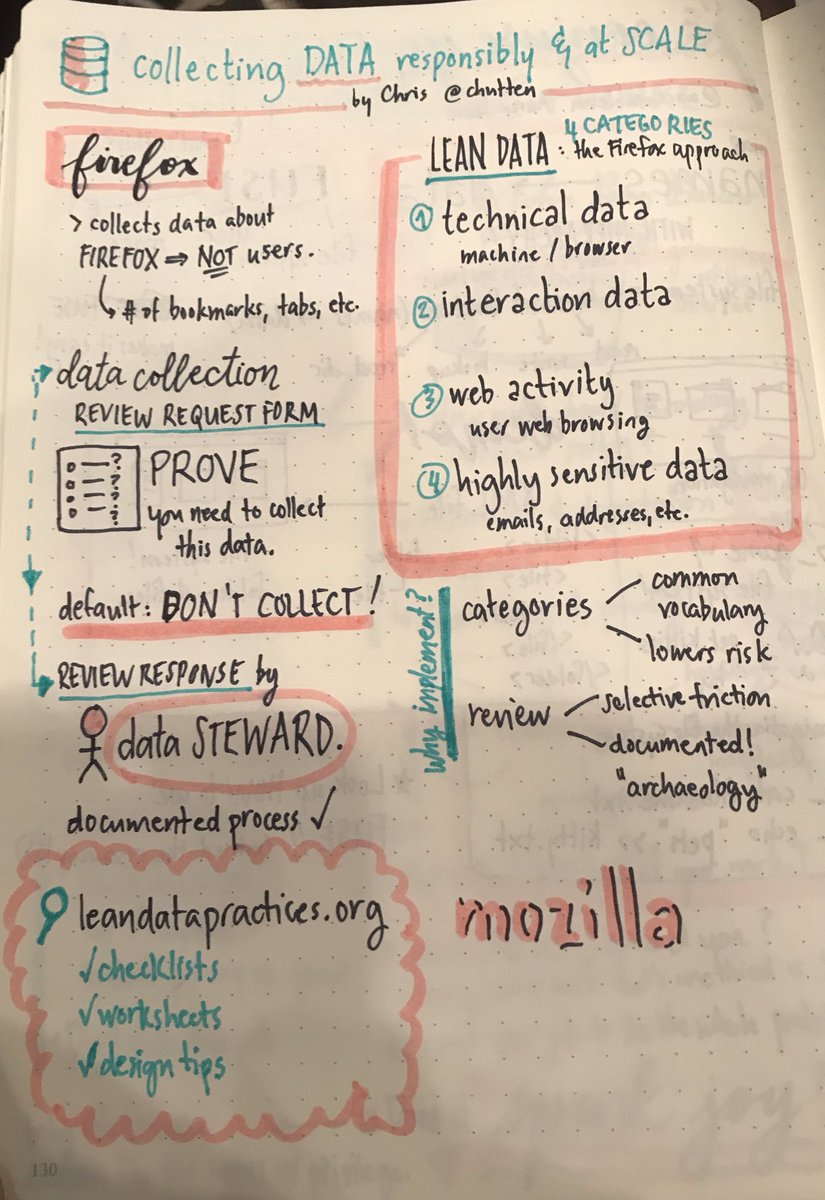 collecting DATA responsibly & at SCALE
by Chris @chutten
firefox
> collects data about
FIREFOX ⇒ NOT users.
↳ # of bookmarks, tabs, etc.
data collection
REVIEW REQUEST FORM
PROVE
you need to collect
this data.
default: DON'T COLLECT!
REVIEW RESPONSE by
data STEWARD.
documented process ✓
leandatapractices.org
✓checklists
✓worksheets
✓design tips
4 CATEGORIES
LEAN DATA : the Firefox approach
① technical data
machine / browser
② interaction data
③ web activity
user web browsing
④ highly sensitive data
emails, addresses, etc.
why implement?
categories
common
vocabulary
lowers risk
review
selective friction
documented!
"archaeology"
mozilla
130